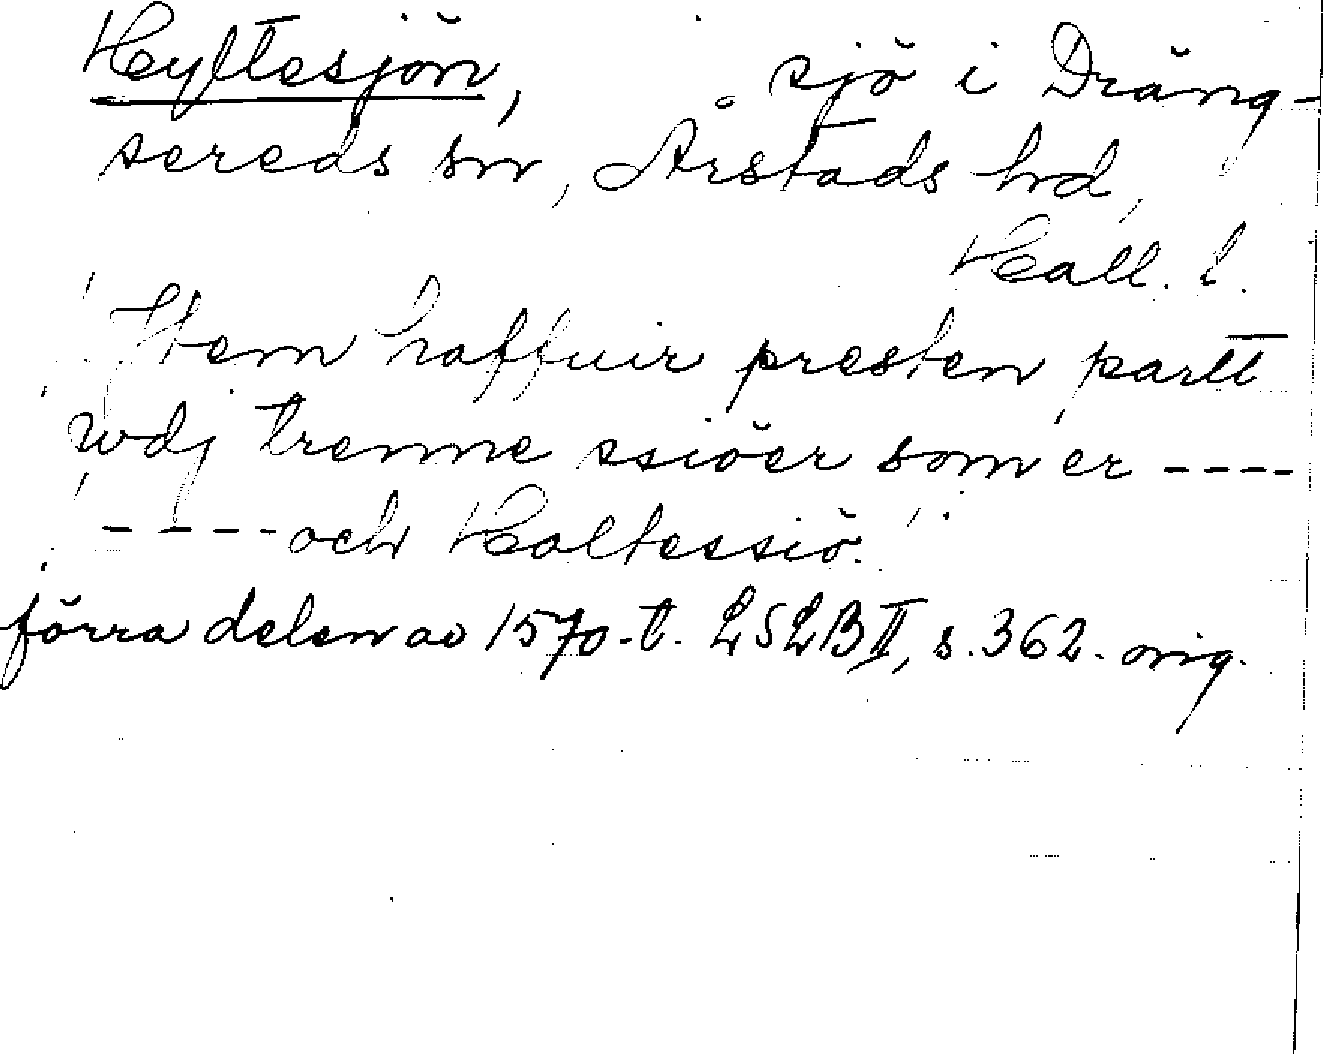 Hyltesjön, sjö i Dräng-
sereds sn, Årstads hd,
Hall. l.
"Item haffuir presten partt
wdj trenne ssiöer som er ----
---- och Holtessiö."
förra delen av 1570-t. LSLB II, s. 362. orig.